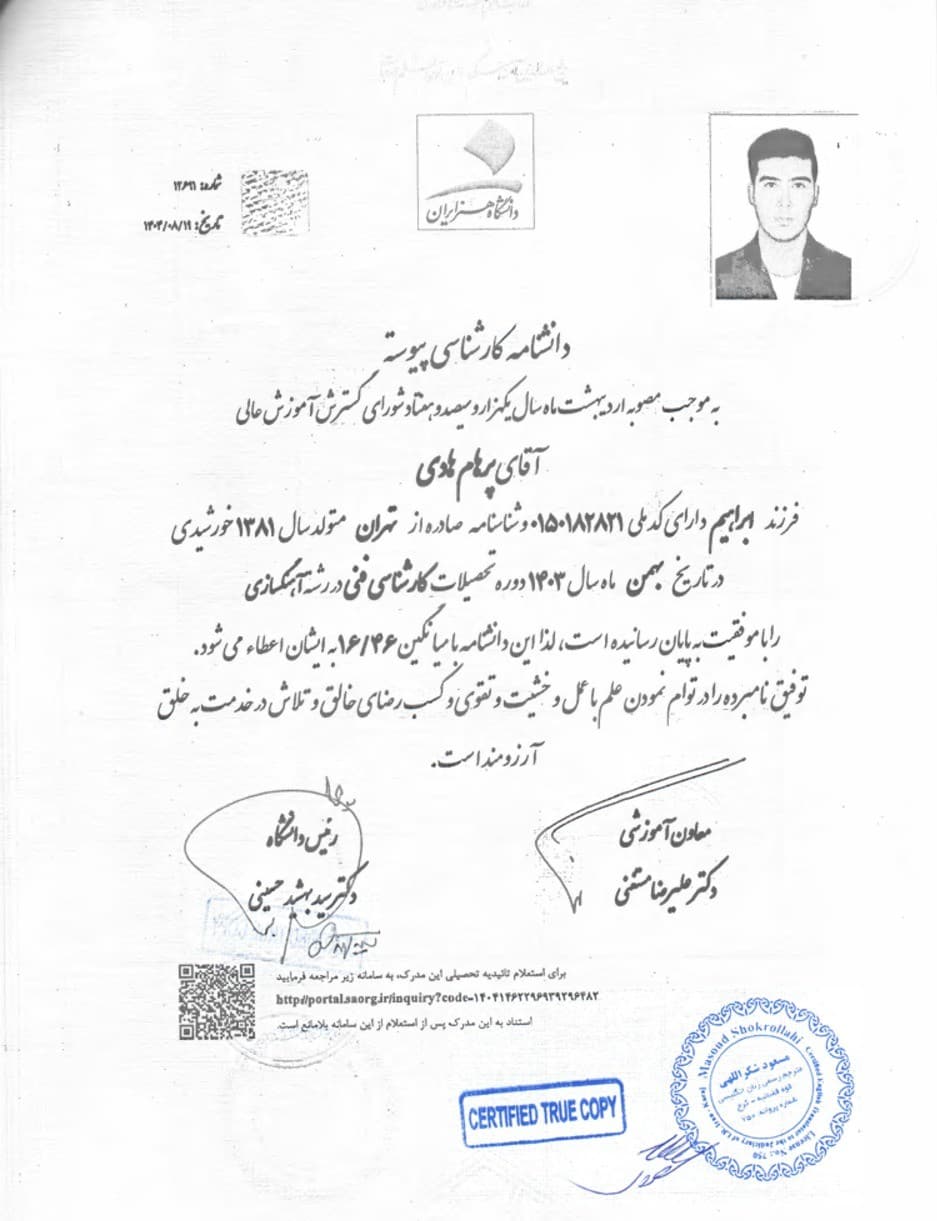 دانشگاه هنر ایران
شماره: ۱۲۶۹۱
تاریخ: ۱۴۰۴/۰۸/۱۹
دانشنامه کارشناسی پیوسته
به موجب مصوبه اردیبهشت ماه سال یکهزار و سیصد و هفتاد شورای گسترش آموزش عالی
آقای پرهام هادی
فرزند ابراهیم دارای کد ملی ۰۱۵۰۱۸۲۸۲۱ و شناسنامه صادره از تهران متولد سال ۱۳۸۱ خورشیدی
در تاریخ بهمن ماه سال ۱۴۰۳ دوره تحصیلات کارشناسی فنی در رشته آهنگسازی
را با موفقیت به پایان رسانیده است، لذا این دانشنامه با میانگین ۱۶/۴۶ به ایشان اعطاء می شود.
توفیق نامبرده را در توام نمودن علم با عمل و خشیت و تقوی و کسب رضای خالق و تلاش در خدمت به خلق
آرزومند است.
معاون آموزشی
دکتر علیرضا مستغنی
رئیس دانشگاه
دکتر سید بهشید حسینی
برای استعلام تائیدیه تحصیلی این مدرک، به سامانه زیر مراجعه فرمایید
http://portal.saorg.ir/inquiry?code=۱۴۰۴۱۴۶۲۲۹۶۹۳۹۲۹۶۴۸۲
استناد به این مدرک پس از استعلام از این سامانه بلامانع است.
CERTIFIED TRUE COPY
Masoud Shokrollahi
Certified English Translator to the Judiciary of I.R. Iran - Karaj
License No.: 750
مسعود شکراللهی
مترجم رسمی زبان انگلیسی
قوه قضائیه - کرج
شماره پروانه ۷۵۰